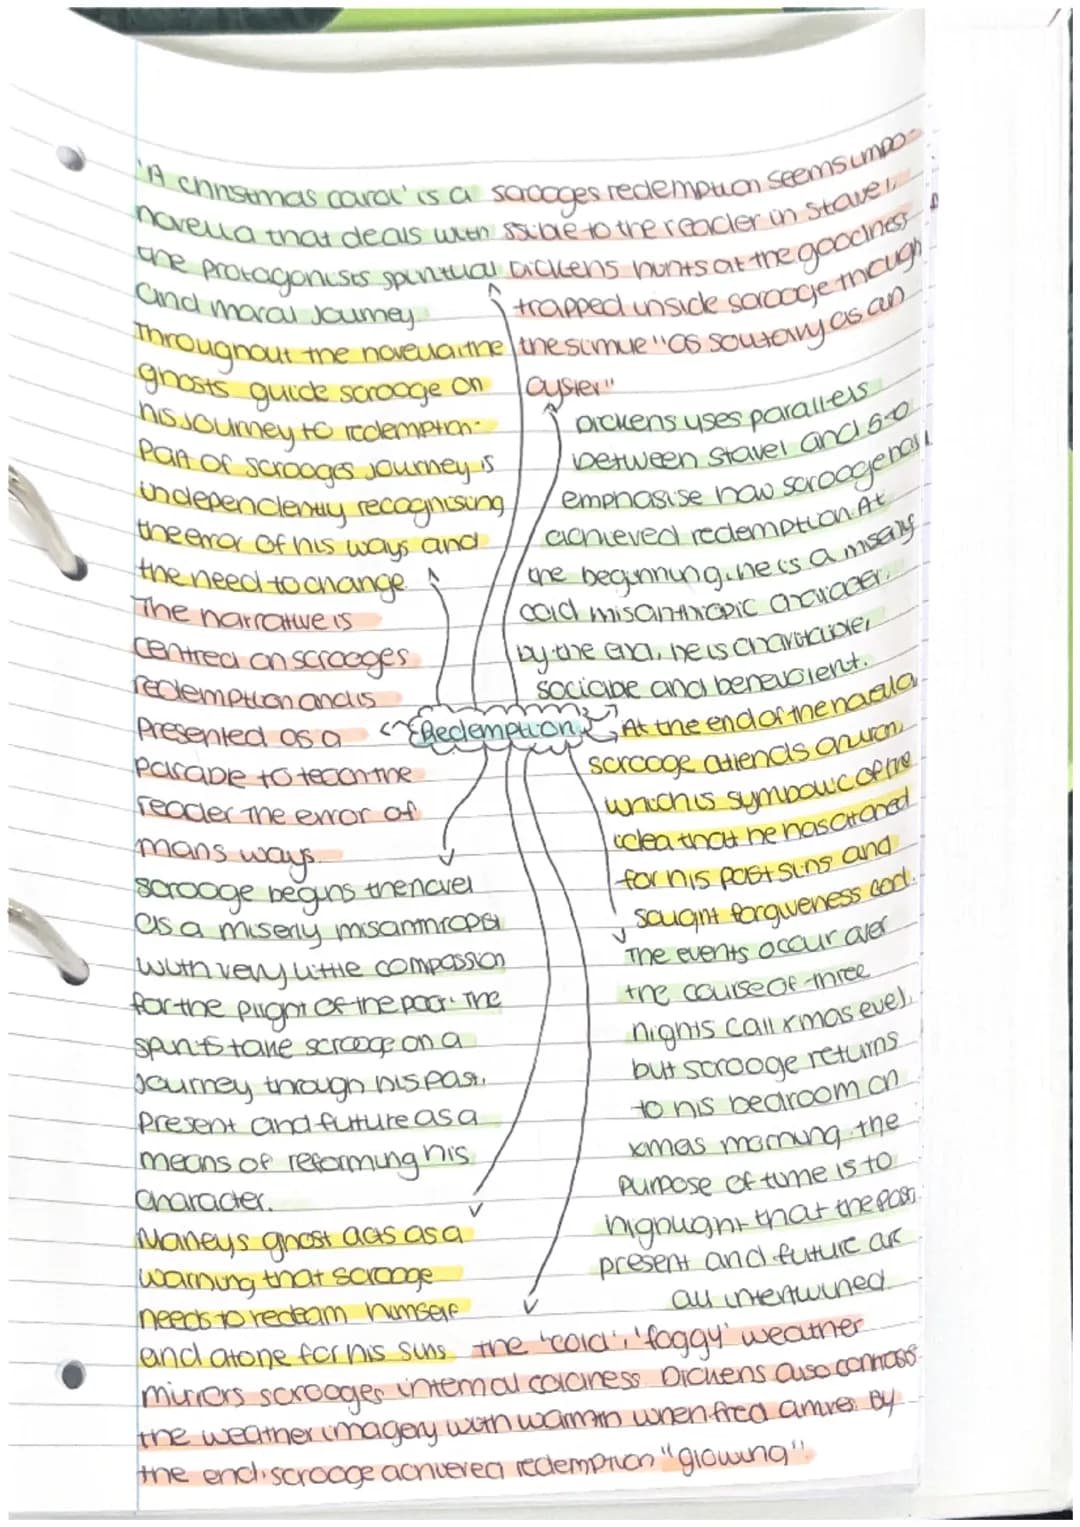 'A christmas carol' is a
novella that deals with
the protagonists spiritual
and moral journey
Throughout the novella, the
ghosts guide scrooge on
his journey to redemption.
Part of scrooges journey is
independently recognising
the error of his ways and
the need to change.
The narrative is
centred on scrooges
redemption and is
presented as a
parable to teach the
reader the error of
mans ways.
scrooge begins the novel
as a miserly misanthropist
with very little compassion
for the plight of the poor. The
spirits take scrooge on a
journey through his past,
present and future as a
means of reforming his
character.
Marleys ghost acts as a
warning that scrooge
needs to redeam himself
and atone for his sins
scrooges redemption seems impo-
ssible to the reader in stave 1,
Dickens hints at the goodness
trapped inside scrooge through
the simile "as solitary as an
oyster"
Dickens uses parallels
between stave 1 and 5 to
emphasise how scrooge has
achieved redemption. At
the beginning, he is a miserly
cold misanthropic character,
by the end, he is charitable,
sociable and benevolent.
Redemption
At the end of the novella
scrooge attends church,
which is symbolic of the
idea that he has atoned
for his past sins and
saught forgiveness God.
The events occur over
the course of three
nights (all xmas eve),
but scrooge returns
to his bedroom on
xmas morning. the
purpose of time is to
highlight that the past,
present and future are
all intertwined.
The 'cold', 'foggy' weather
mirrors scrooges internal coldness Dickens also contrass
the weather imagery with warmth when fred arrives. By
the end, scrooge achieved redemption "glowing".